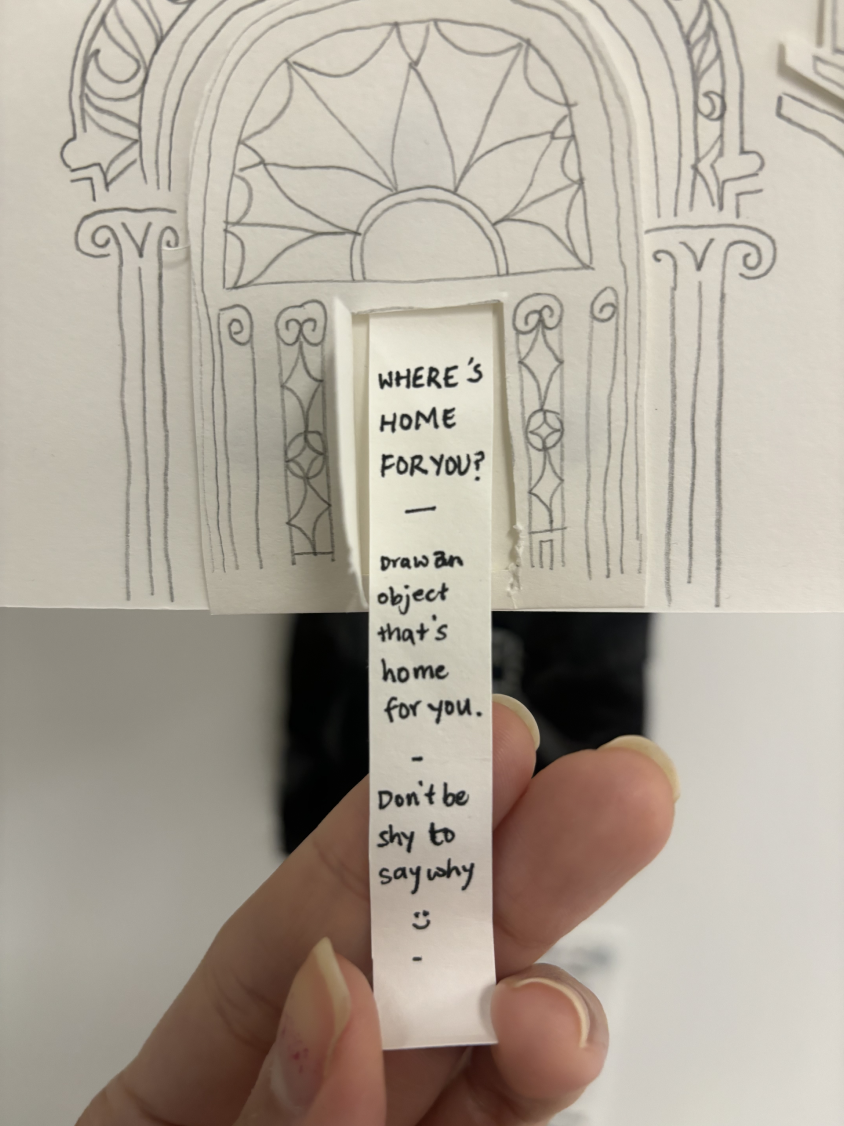 WHERE'S
HOME
FOR YOU?
—
Draw an
object
that's
home
for you.
-
Don't be
shy to
say why
:)
-